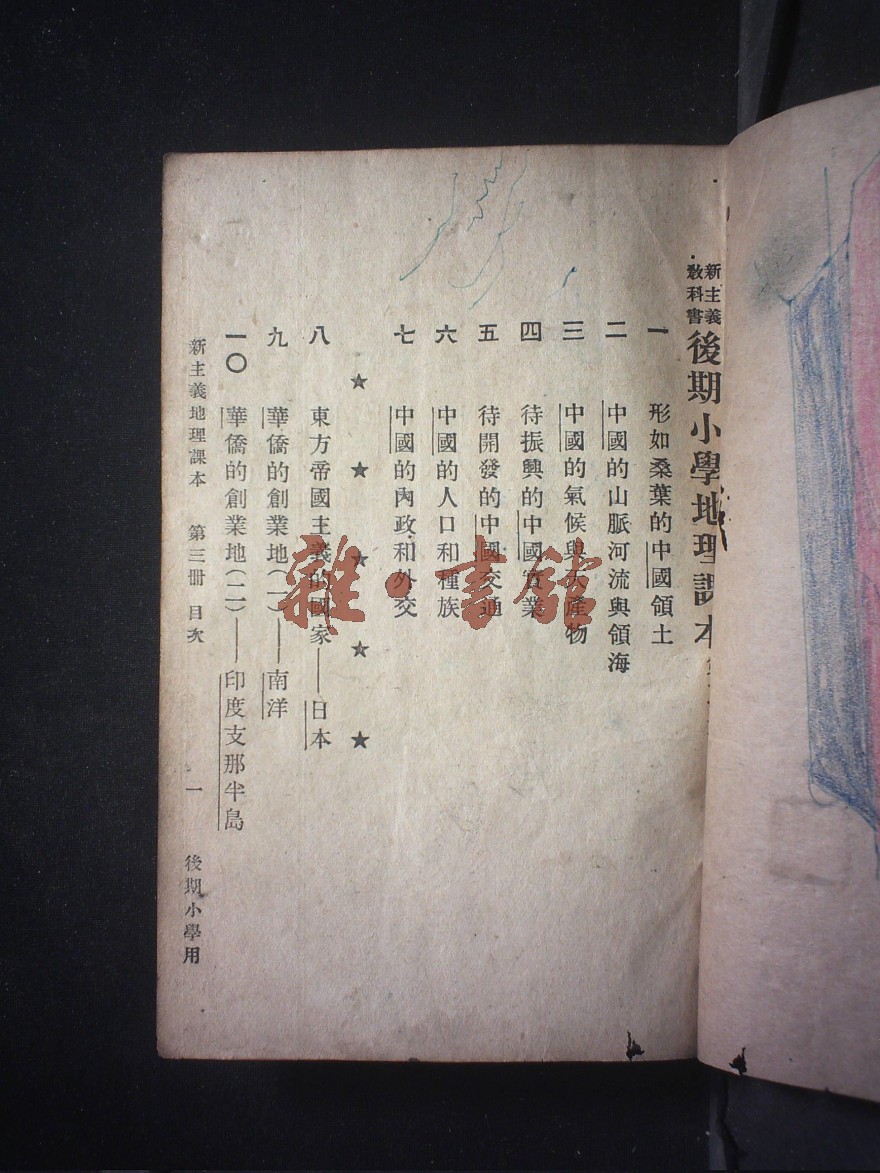 新主義
教科書
後期小學地理課本
一 形如桑葉的中國領土
二 中國的山脈河流與領海
三 中國的氣候與天產物
四 待振興的中國實業
五 待開發的中國交通
六 中國的人口和種族
七 中國的內政和外交
★ ★ ★ ★ ★
八 東方帝國主義的國家——日本
九 華僑的創業地(一)——南洋
一〇 華僑的創業地(二)——印度支那半島
新主義地理課本 第三冊 目次 一 後期小學用
雜·書館